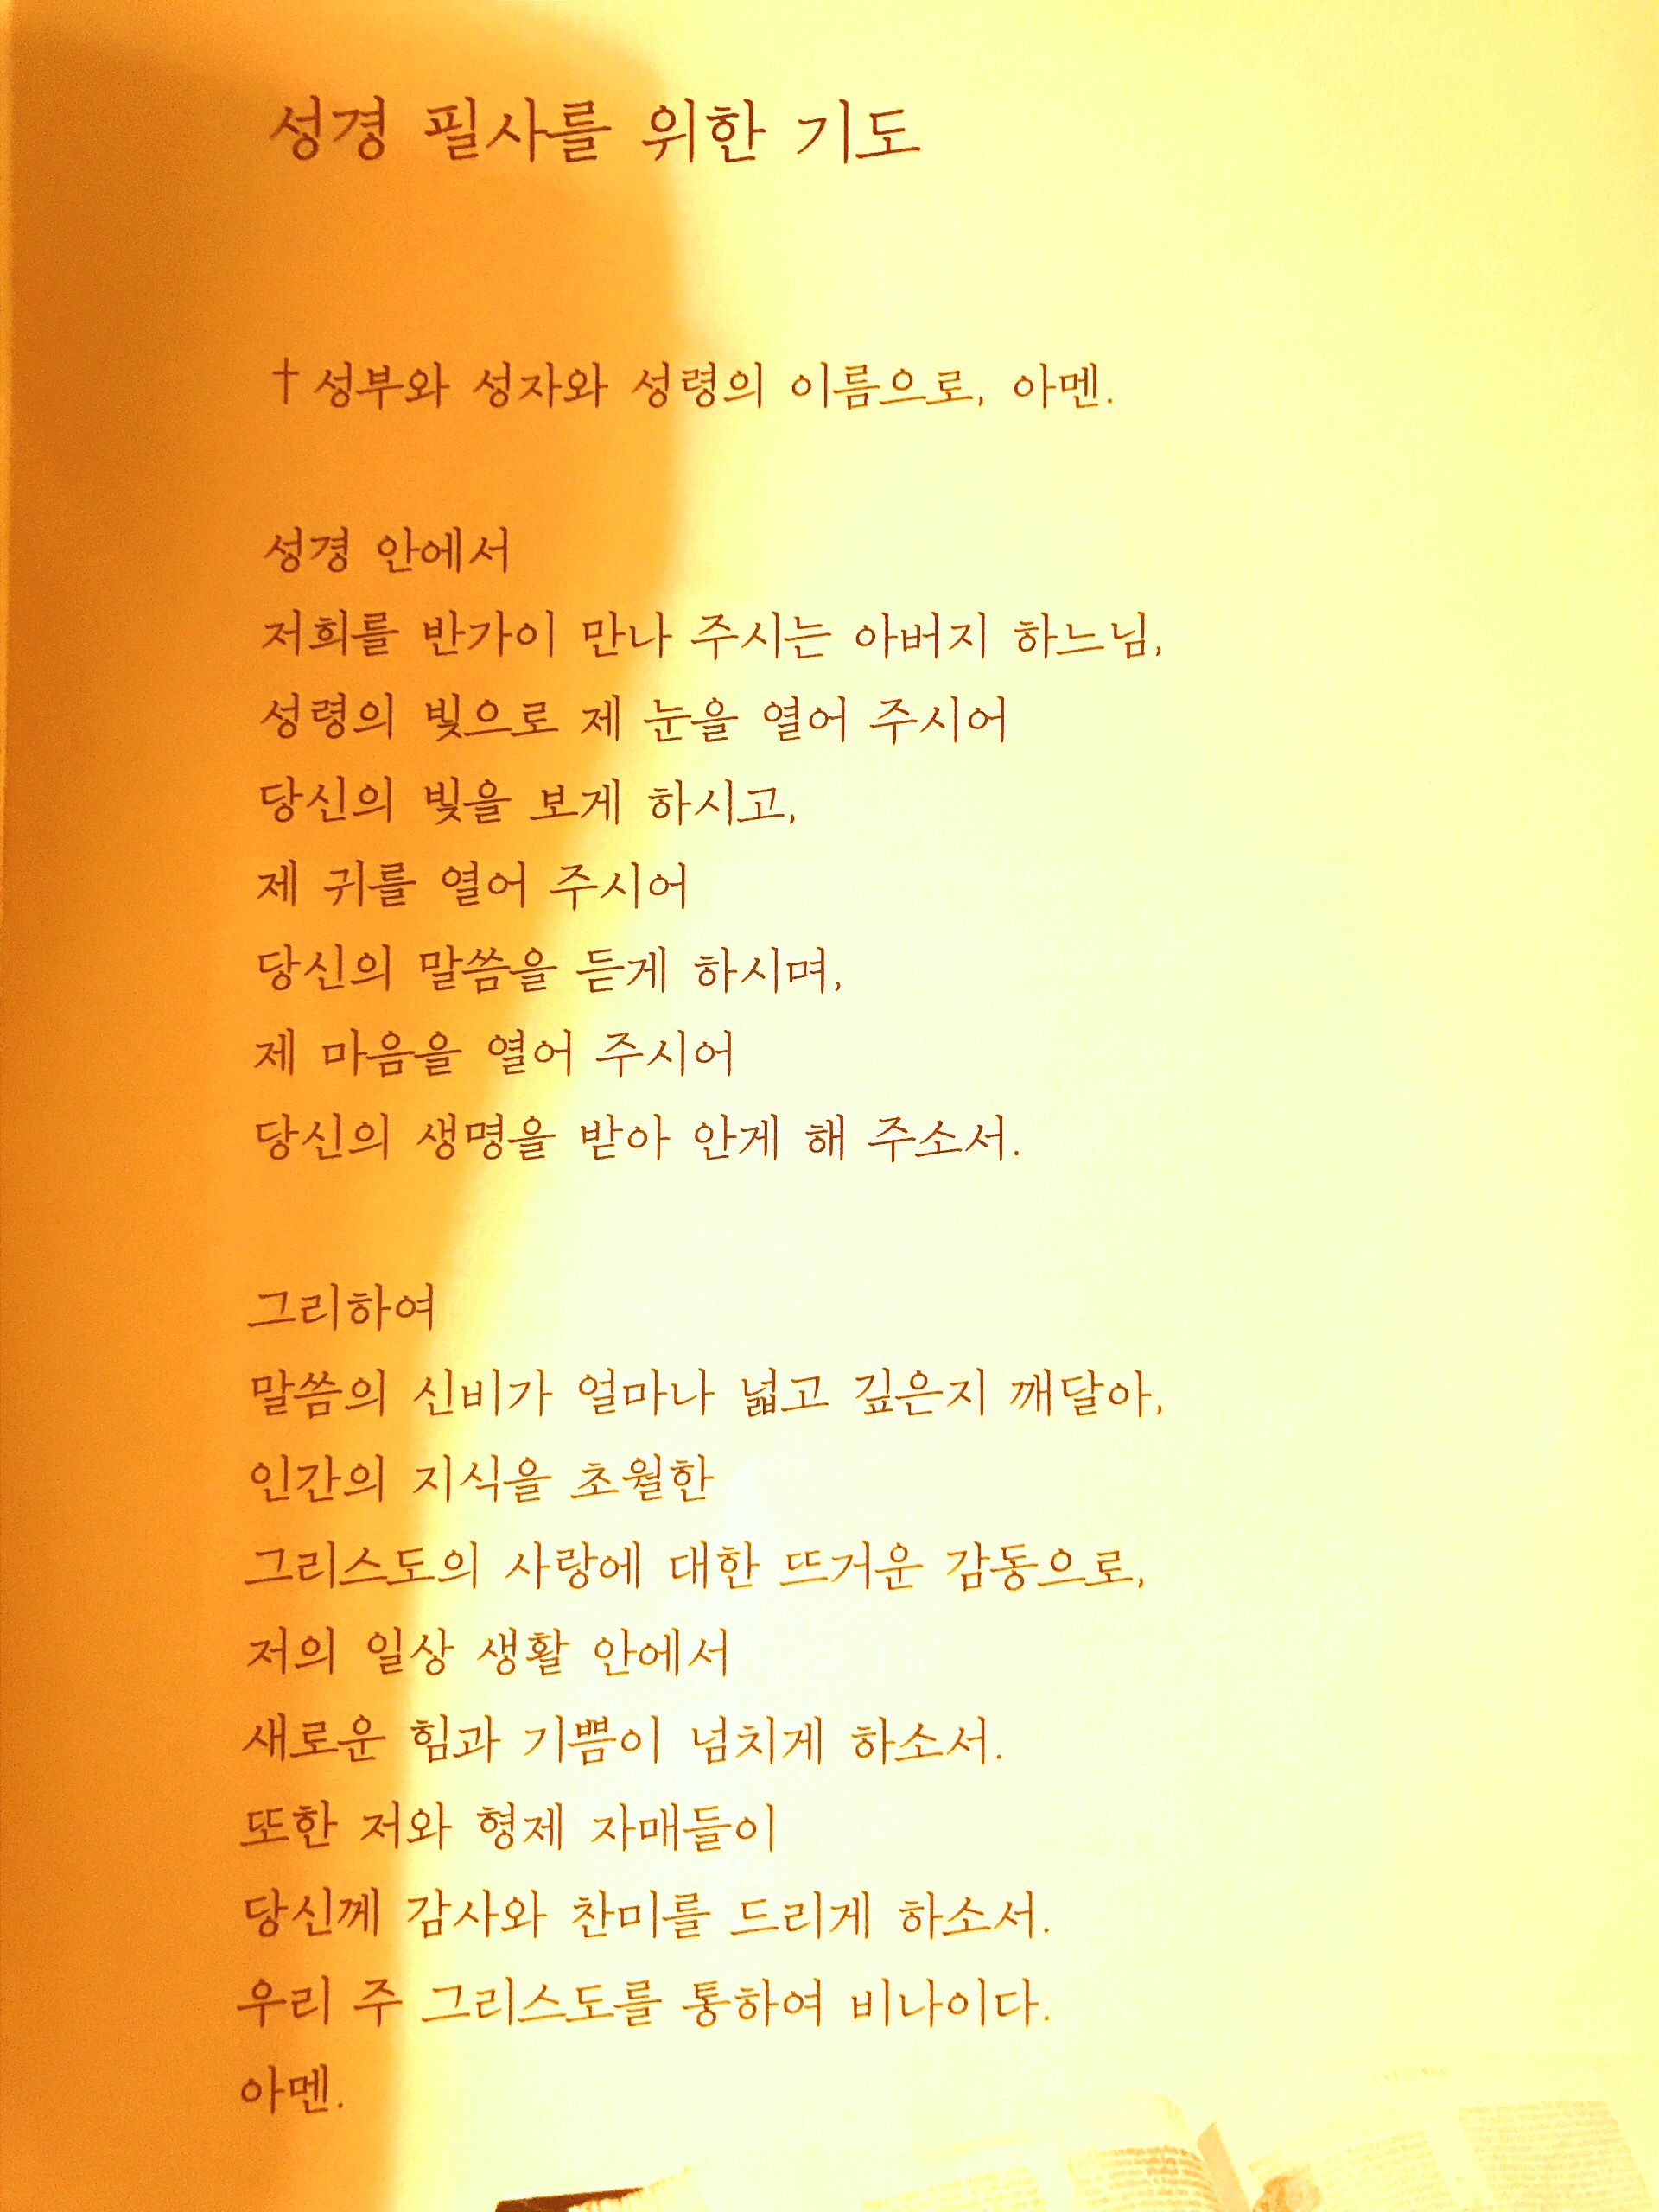 성경 필사를 위한 기도
†성부와 성자와 성령의 이름으로, 아멘.
성경 안에서
저희를 반가이 만나 주시는 아버지 하느님,
성령의 빛으로 제 눈을 열어 주시어
당신의 빛을 보게 하시고,
제 귀를 열어 주시어
당신의 말씀을 듣게 하시며,
제 마음을 열어 주시어
당신의 생명을 받아 안게 해 주소서.
그리하여
말씀의 신비가 얼마나 넓고 깊은지 깨달아,
인간의 지식을 초월한
그리스도의 사랑에 대한 뜨거운 감동으로,
저의 일상 생활 안에서
새로운 힘과 기쁨이 넘치게 하소서.
또한 저와 형제 자매들이
당신께 감사와 찬미를 드리게 하소서.
우리 주 그리스도를 통하여 비나이다.
아멘.